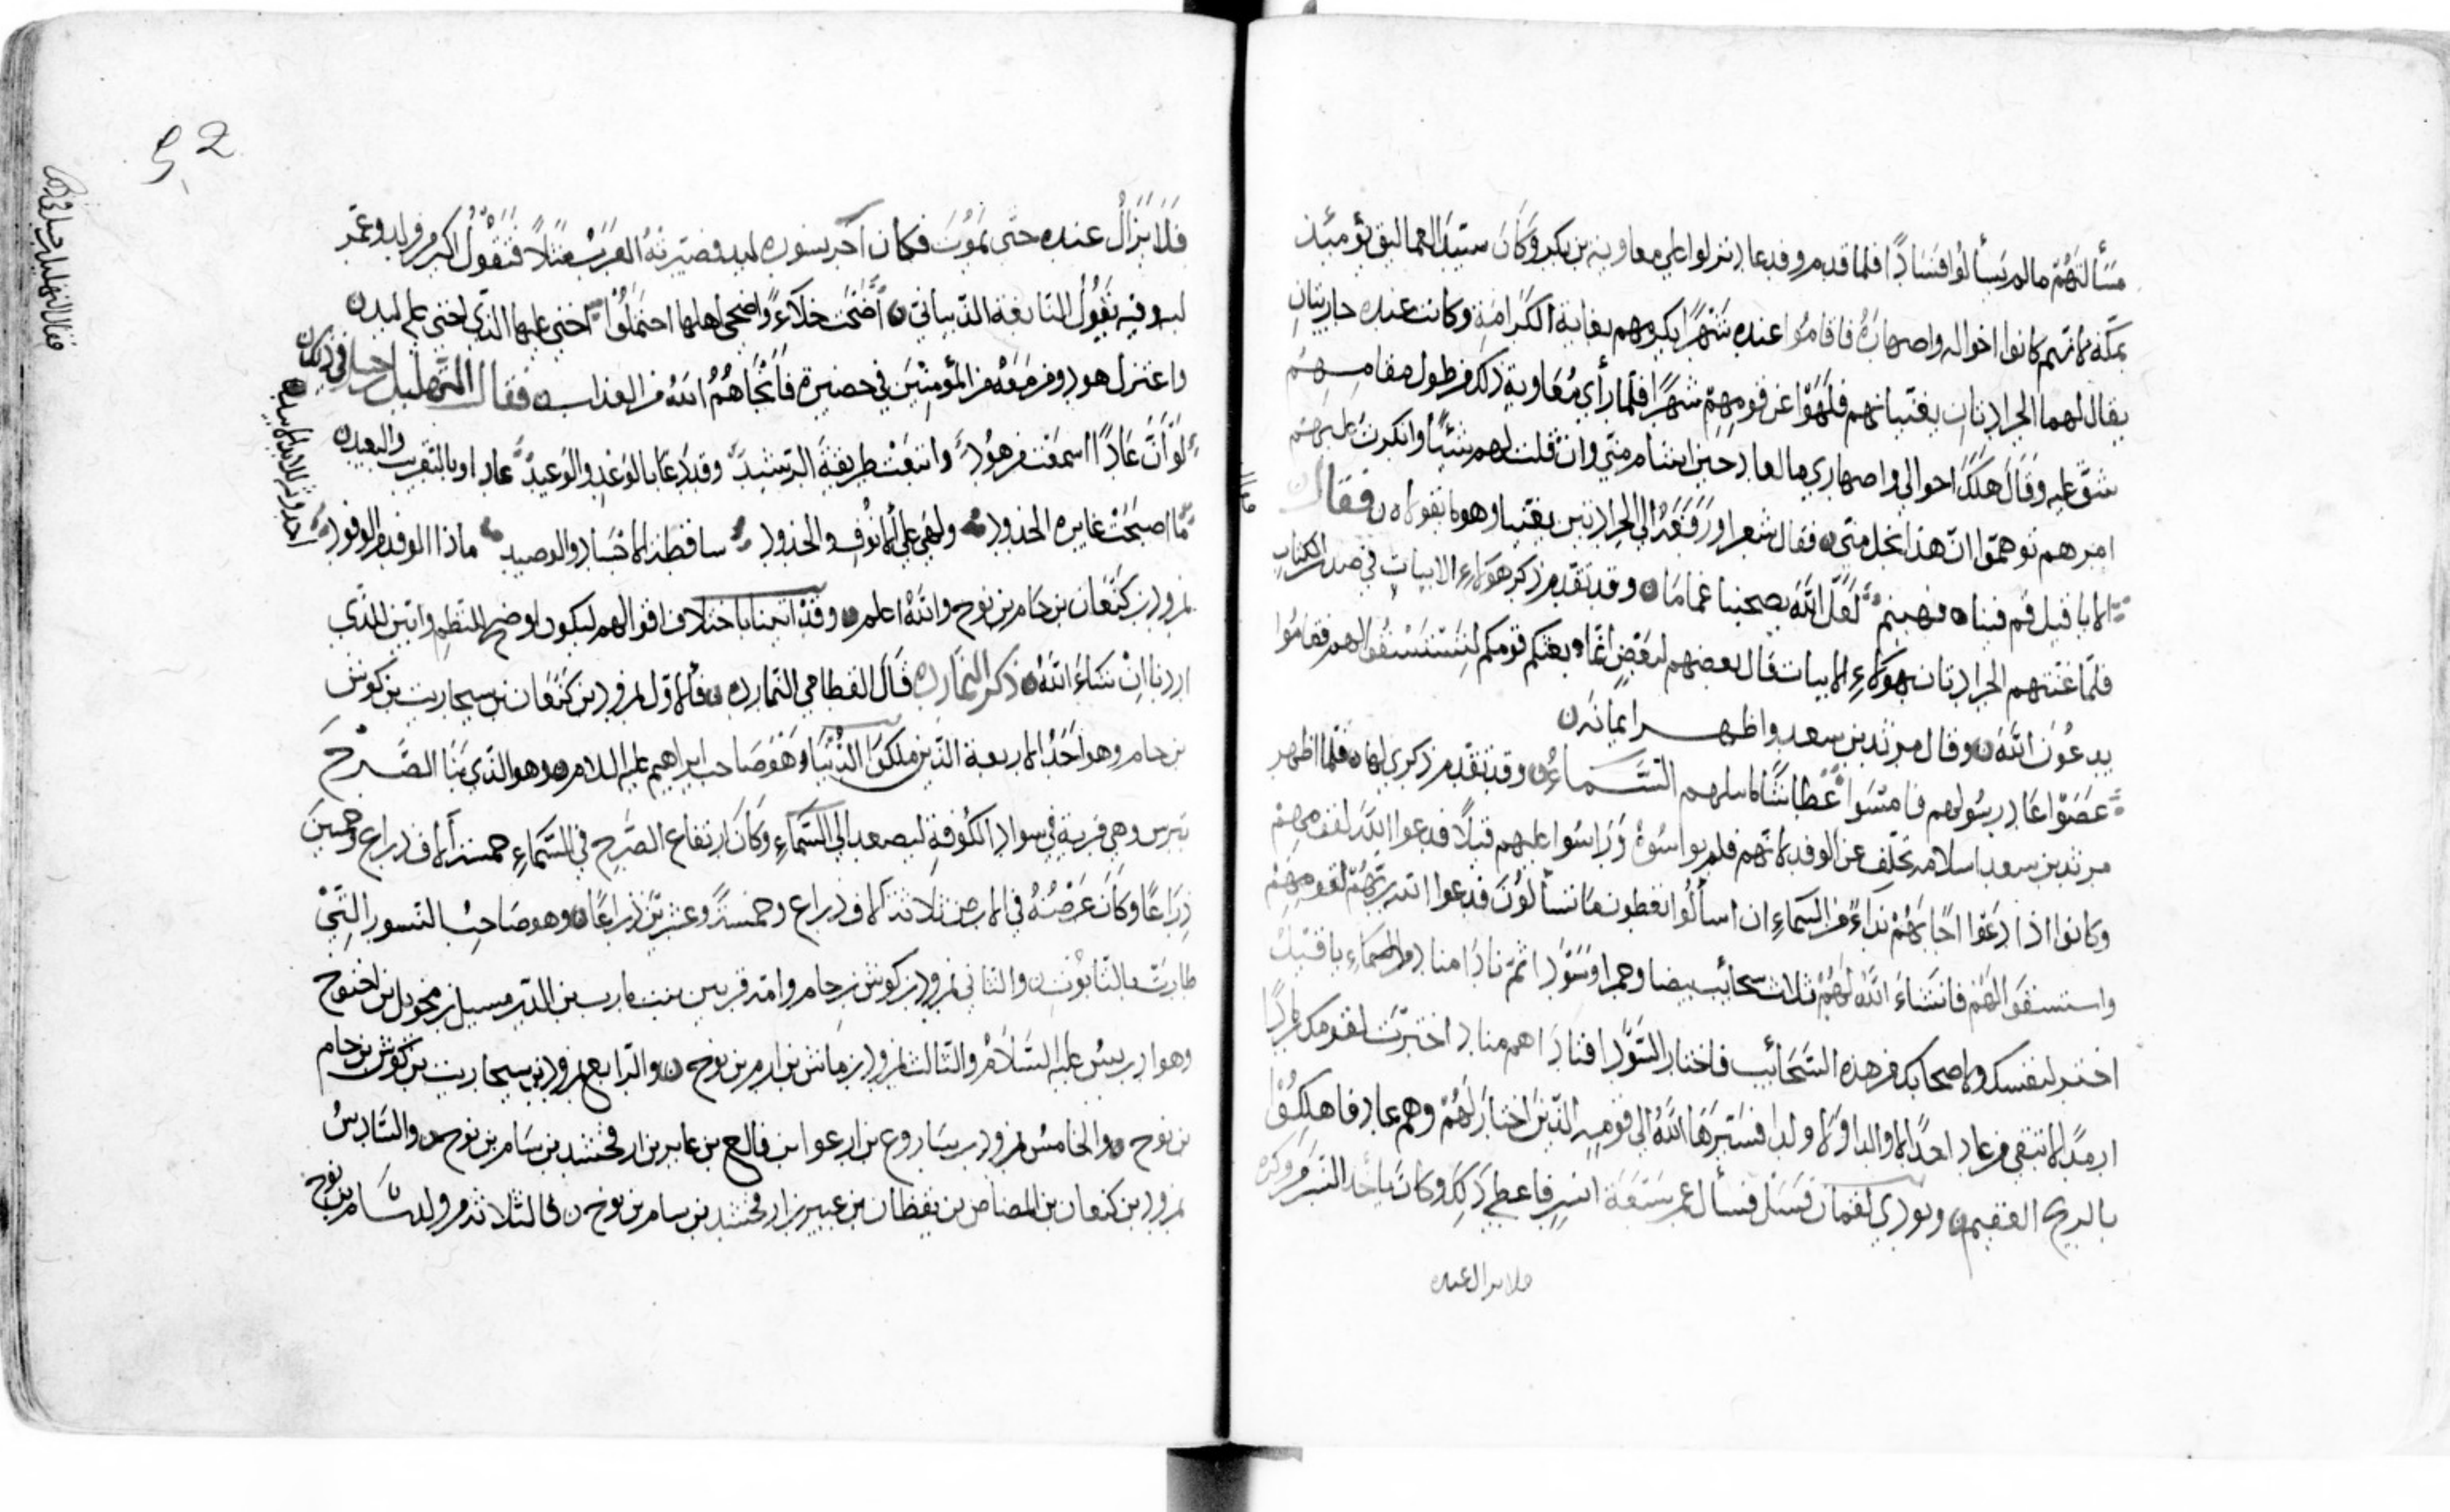 مسألتهم ما لم يسألوا فسادًا فلما قدم وفد عاد نزلوا علي معاوية بن بكر وكان سيّد العماليق يومئذ
بمكة لانهم كانوا اخواله واصهاره فاقاموا عنده شهرًا يكرمهم بغاية الكرامة وكانت عنده جاريتان
يقال لهما الجرادتان يغنيانهم فلهوا عن قومهم شهرًا فلما رأي معاوية ذلك من طول مقامهم
شق عليه وقال هلك اخوالي واصهاري ما لعاد حين اشام مني وان قلت لهم شيئًا وانكرت عليهم
امرهم توهموا ان هذا بخل مني فقال شعرا ورفعه الي الجرادتين يغنيا وهو ما يقولان فقال
الا يا قيل قم فينا فهينم لعل الله يصحبنا غماما وقد تقدم ذكر هؤلاء الابيات في صدر الكتاب
فلما غنتهم الجرادتان بهؤلاء الابيات قال بعضهم لبعض انما بعثكم قومكم لتستسقوا لهم فقاموا
يدعون الله وقال مرثد بن سعد واظهر ايمانه
عصوا عاد رسولهم فامسوا عطاشا ما سلهم السماء وقد تقدم ذكري لها فلما اظهر
مرثد بن سعد اسلامه تخلف عن الوفد لانهم فلم يواسوه وراسوا عليهم قيلا فدعوا الله لقومهم
وكانوا اذا دعوا اجابهم نداء من السماء ان اسألوا تعطون ما تسألون فدعوا الله ربهم لقومهم
واستسقوا لهم فانشاء الله لهم ثلاث سحائب بيضا وحمرا وسودا ثم نادا مناد من السماء يا قيل
اختر لنفسك ولاصحابك من هذه السحائب فاختار السودا فناداهم مناد اخترت لقومك رمادًا
ارمدًا لا تبقي من عاد احدًا لا والدا ولا ولدا فسيرها الله الي قومه الذين اختار لهم وهم عاد فاهلكوا
بالريح العقيم ونودي لقمان سل فسأل عمر سبعة انسر فاعطي ذلك وكان يأخذ النسر من وكره
فلا يزال عنده
فلا يزال عنده حتى يموت فكان آخر نسوره لبد فصيرته العرب مثلًا فتقول اكبر من لبد وعمّر
لبد وفيه يقول النابغة الذبياني اضحت خلاءً واضحي اهلها احتملوا اخني عليها الذي اخني علي لبد
واعتزل هود ومن معه من المؤمنين في حضيرة فانجاهم الله من العذاب فقال المهليل بن جبل في ذلك
لو ان عادًا اسمعت من هود واتبعت طريقة الرشيد وقد دعا بالوعد والوعيد عادا وبالتقريب والبعيد
ما اصبحت غايرة الجدود ولهي علي الانوف والخدود ساقطة الاجساد والوصيد ماذا الوفد من الوفود
احدوثة للابد الابيد
نمرود بن كنعان بن حام بن نوح والله اعلم وقد اتينا باختلاف اقوالهم ليكون اوضح للنظم وابين للذي
اردنا ان شاء الله ذكر النماردة قال القطامي النماردة فالاول نمرود بن كنعان بن سيحاريب بن كوش
بن حام وهو احد الاربعة الذين ملكوا الدنيا وهو صاحب ابراهيم عليه السلام وهو الذي بنا الصرح
بترس وهي قرية في سواد الكوفة ليصعد الي السماء وكان ارتفاع الصرح في السماء خمسة آلاف ذراع وخمسين
ذراعًا وكان عرضه في الارض ثلاثة آلاف ذراع وخمسة وعشرين ذراعًا وهو صاحب النسور التي
طارت بالتابوت والثاني نمرود بن كوش بن حام وامه قربين بنت مارب بن الدرمسيل بن محويل بن اخنوخ
وهو ادريس عليه السلام والثالث نمرود بن ماش بن ارم بن نوح والرابع نمرود بن سيحاريب بن كوش بن حام
بن نوح والخامس نمرود بن ساروع بن ارعوا بن فالع بن عابر بن ارفخشد بن سام بن نوح والسادس
نمرود بن كنعان بن المصاص بن يقظان بن عبير بن ارفخشد بن سام بن نوح فالثلاثة من ولد سام بن نوح